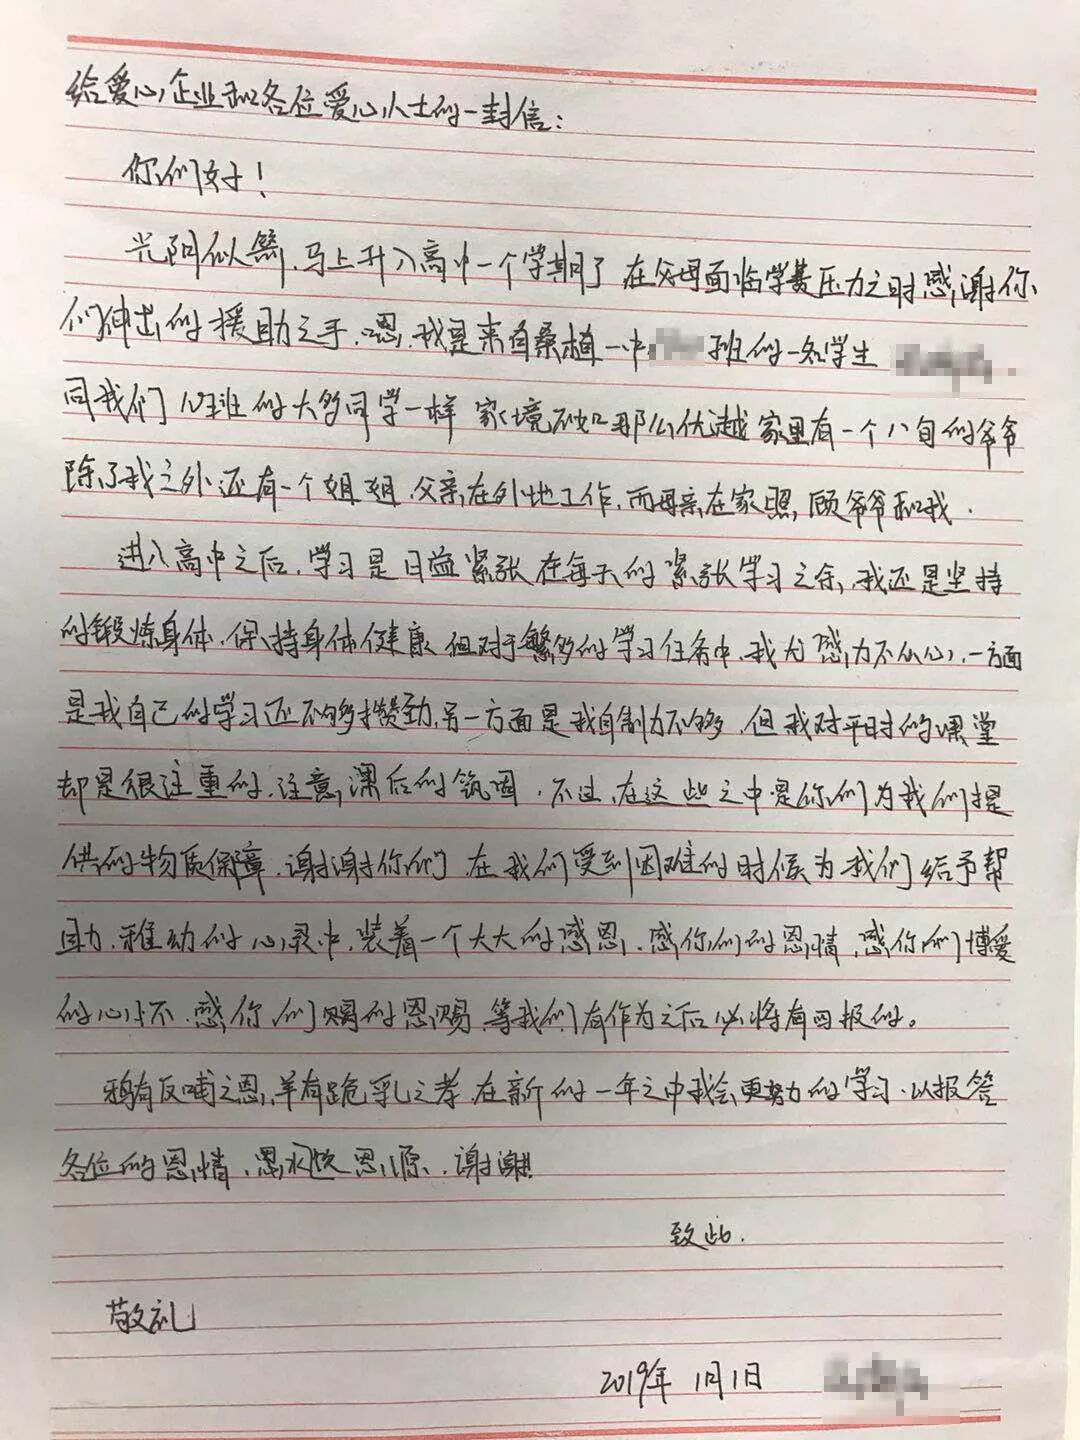 给爱心企业和各位爱心人士的一封信:
你们好!
光阴似箭.马上升入高中一个学期了 在父母面临学费压力之时感谢你
们伸出的援助之手.嗯.我是来自桑植一中 班的一名学生
同我们 班的大多同学一样 家境不如那么优越 家里有一个八旬的爷爷
除了我之外还有一个姐姐.父亲在外地工作.而母亲在家照顾爷爷和我.
进入高中之后.学习是日益紧张 在每天的紧张学习之余,我还是坚持
的锻炼身体.保持身体健康 但对于繁多的学习任务中.我尤感力不从心.一方面
是我自己的学习还不够攒劲,另一方面是我自制力不够.但我对平时的课堂
却是很注重的.注意课后的巩固.不过.在这些之中是你们为我们提
供的物质保障.谢谢你们 在我们受到困难的时候为我们给予帮
助.雅动的心灵中.装着一个大大的感恩.感你们的恩情.感你们博爱
的心怀.感你们赐的恩赐.等我们有作为之后必将有回报的。
鸦有反哺之恩,羊有跪乳之孝.在新的一年之中我会更努力的学习.以报答
各位的恩情.思水饮思源.谢谢!!
致此.
敬礼
2019年 1月1日